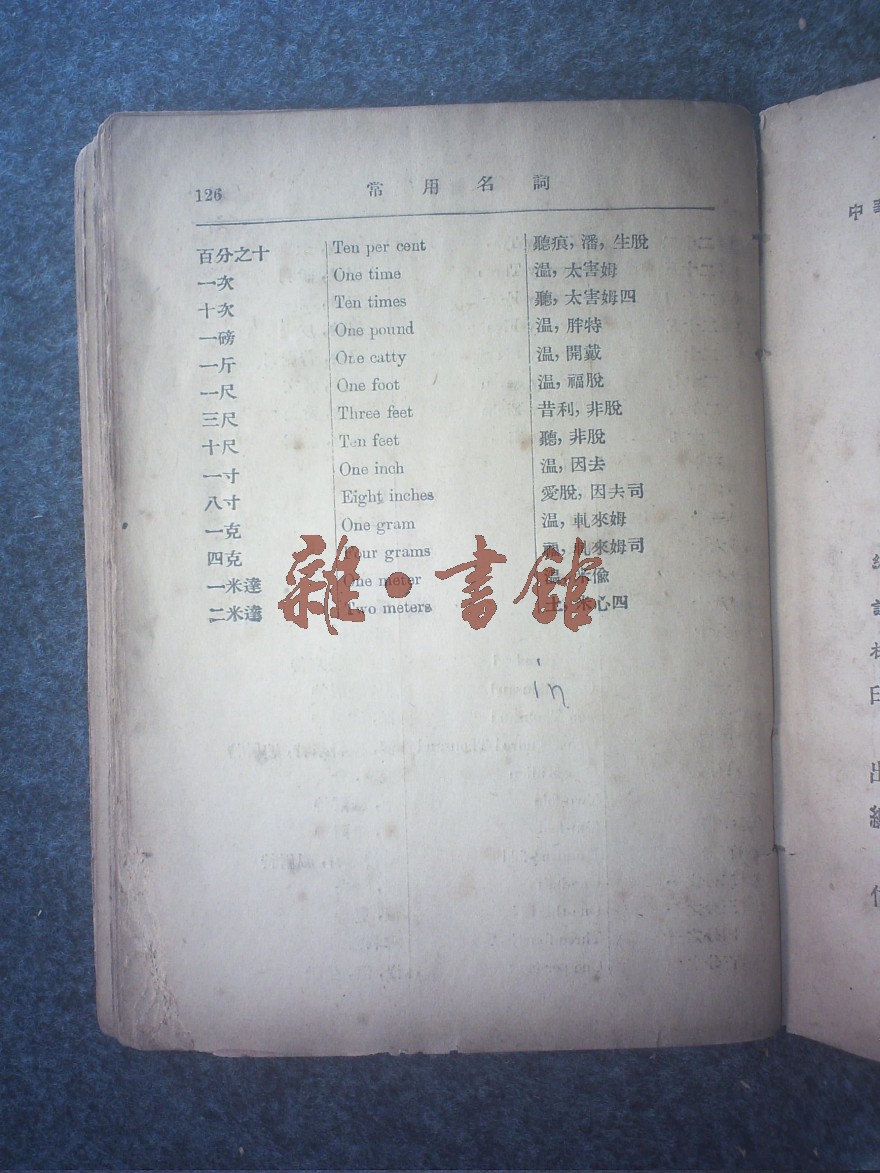 126 常用名詞
百分之十 Ten per cent 聽痕, 潘, 生脫
一次 One time 溫, 太害姆
十次 Ten times 聽, 太害姆四
一磅 One pound 溫, 胖特
一斤 One catty 溫, 開戴
一尺 One foot 溫, 福脫
三尺 Three feet 昔利, 非脫
十尺 Ten feet 聽, 非脫
一寸 One inch 溫, 因去
八寸 Eight inches 愛脫, 因去司
一克 One gram 溫, 軋來姆
四克 Four grams 軋來姆司
一米達 One meter 米偷
二米達 Two meters 土, 米心四
雜·書館
in
中
出